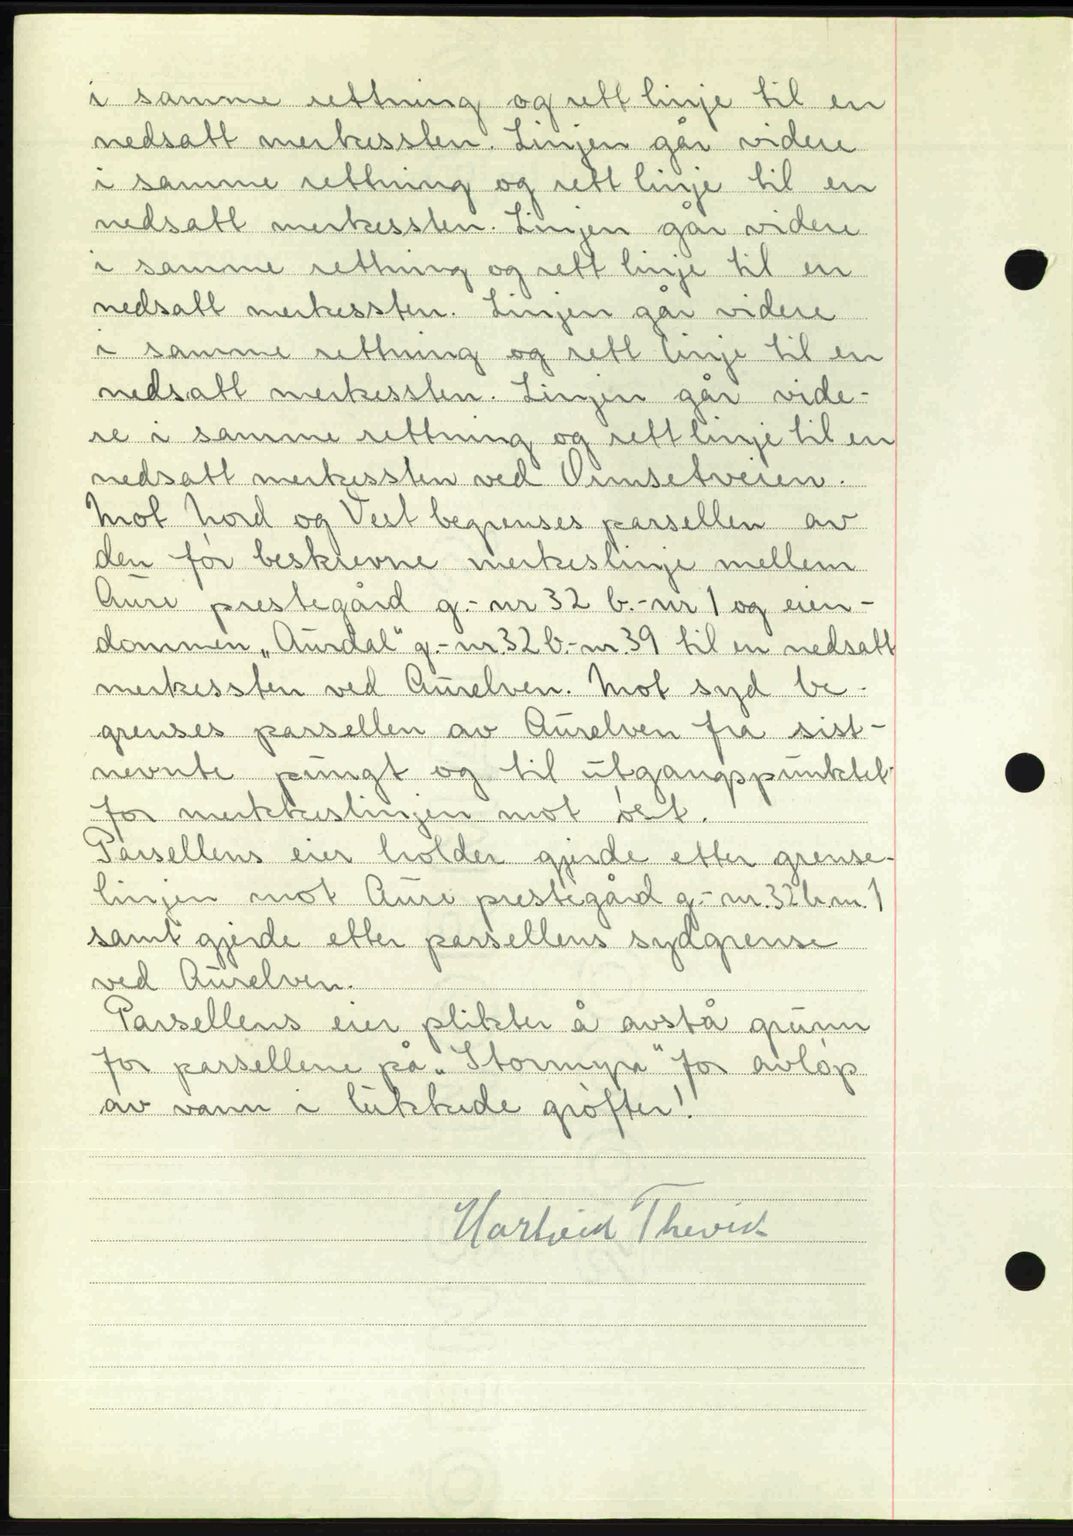 i samme rettning og rett linje til en
nedsatt merkessten. Linjen går videre
i samme rettning og rett linje til en
nedsatt merkessten. Linjen går videre
i samme rettning og rett linje til en
nedsatt merkessten. Linjen går videre
i samme rettning og rett linje til en
nedsatt merkessten. Linjen går vide-
re i samme rettning og rett linje til en
nedsatt merkessten ved Ormsetveien.
Mot Nord og Vest begrenses parsellen av
den før beskrevne merkeslinje mellem
Aure prestegård g.-nr 32 b.-nr 1 og eien-
dommen „Aurdal" g.-nr. 32 b.-nr. 39 til en nedsatt
merkessten ved Aurelven. Mot syd be-
grenses parsellen av Aurelven fra sist-
nevnte pungt og til utgangspunktet
for merkkeslinjen mot øst.
Parsellens eier holder gjerde etter grense-
linjen mot Aure prestegård g.-nr. 32 b.nr. 1
samt gjerde etter parsellens sydgrense
ved Aurelven.
Parsellens eier plikter å avstå grunn
for parsellene på „Stormyra" for avløp
av vann i lukkede grøfter!
Thevik